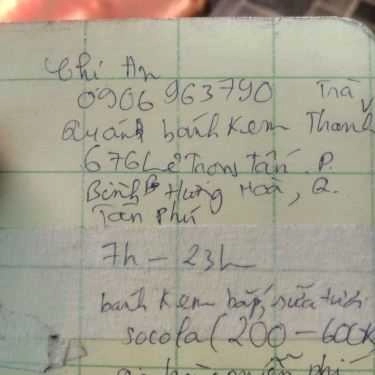 Chị An
0906 963790 Trà
Quán bánh kem Thanh
676 Lê Trọng Tấn. P.
Bình Hưng Hoà, Q.
Tân Phú
7h - 23h
bánh kem bắp, sữa tươi
socola (200 - 600K